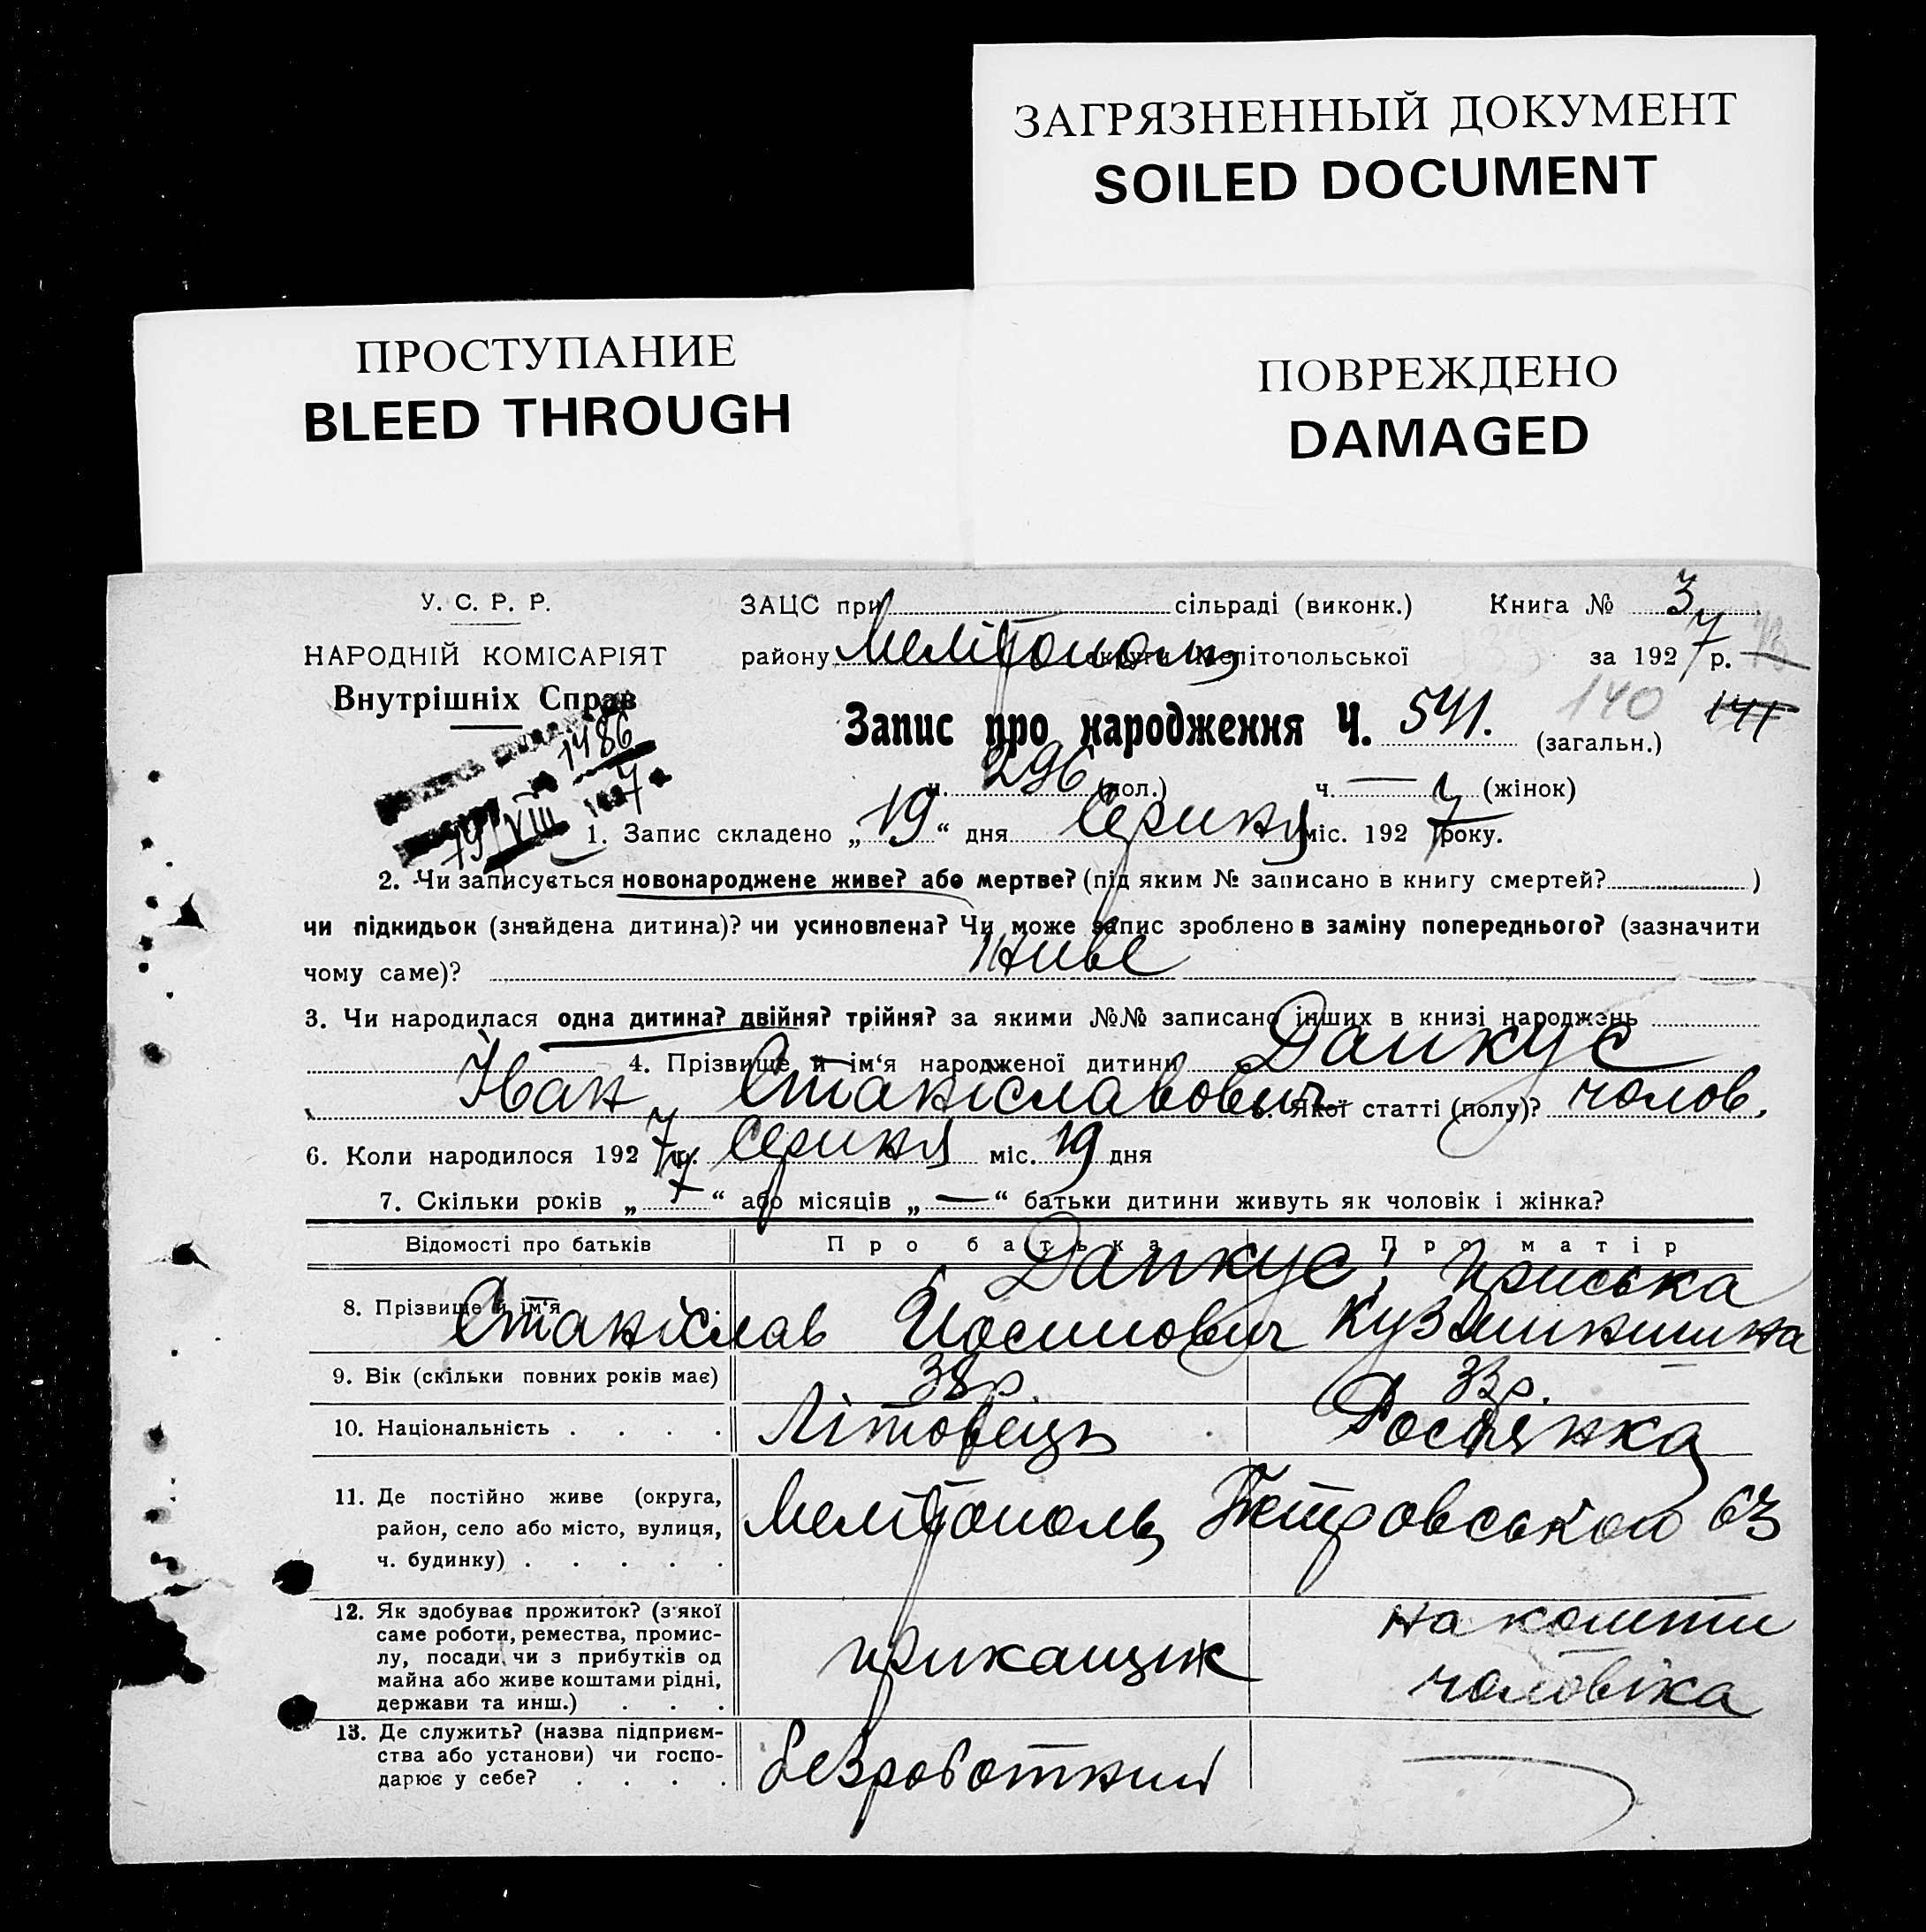 ЗАГРЯЗНЕННЫЙ ДОКУМЕНТ
SOILED DOCUMENT
ПРОСТУПАНИЕ
BLEED THROUGH
ПОВРЕЖДЕНО
DAMAGED
У. С. Р. Р.
НАРОДНІЙ КОМІСАРІЯТ
Внутрішніх Справ
ЗАЦС при сільраді (виконк.) Книга № 3
району Мелітополь округи Мелітопольської за 1927 р.
Запис про народження Ч. 541. (загальн.) 140 141
1486
19/VIII 1927
ч. 296 (пол.) ч. — (жінок)
1. Запис складено „19“ дня Серпня міс. 1927 року.
2. Чи записується новонароджене живе? або мертве? (під яким № записано в книгу смертей? )
чи підкидьок (знайдена дитина)? чи усиновлена? Чи може запис зроблено в заміну попереднього? (зазначити
чому саме)? живе
3. Чи народилася одна дитина? двійня? трійня? за якими №№ записано інших в книзі народжень
4. Прізвище й ім‘я народженої дитини Данкус
Іван Станіславович 5. Якої статті (полу)? чолов.
6. Коли народилося 1927 р. Серпня міс. 19 дня
7. Скільки років „7“ або місяців „—“ батьки дитини живуть як чоловік і жінка?
Відомості про батьків Про батька Про матір
8. Прізвище й ім‘я Данкус Станіслав Йосипович Пріська Кузьминишна
9. Вік (скільки повних років має) 38р. 33р.
10. Національність . . . . Літовець Росіянка
11. Де постійно живе (округа,
район, село або місто, вулиця,
ч. будинку) . . . . .
Мелітополь Петровської 63
12. Як здобуває прожиток? (з якої
саме роботи, ремества, промис-
лу, посади, чи з прибутків од
майна або живе коштами рідні,
держави та инш.) . . .
прикащик
на кошти
чоловіка
13. Де служить? (назва підприєм-
ства або установи) чи госпо-
дарює у себе? . . . .
безроботний